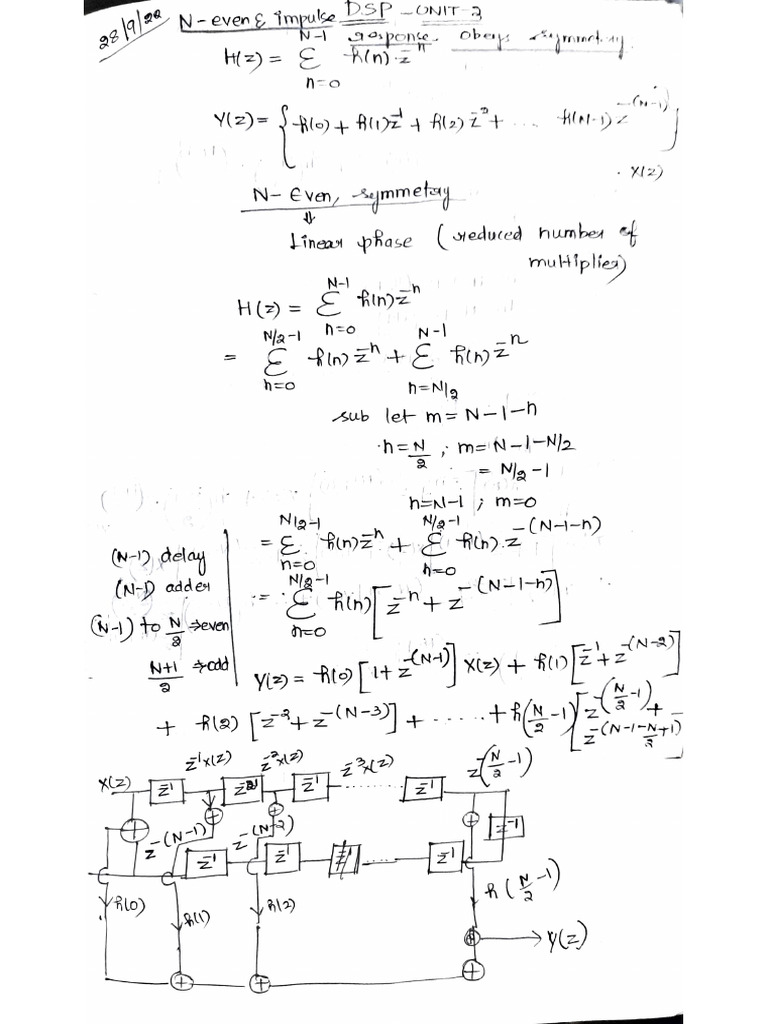 28/9/22
N-even & impulse DSP - UNIT-3
response obeys symmetry
H(z) = Σ_{n=0}^{N-1} h(n)·z^{-n}
Y(z) = { h(0) + h(1)z^{-1} + h(2)z^{-2} + ... h(N-1)z^{-(N-1)} }
· X(z)
N- Even, symmetry
⇓
Linear phase (reduced number of
multiplier)
H(z) = Σ_{n=0}^{N-1} h(n)z^{-n}
= Σ_{n=0}^{N/2-1} h(n)z^{-n} + Σ_{n=N/2}^{N-1} h(n)z^{-n}
sub let m = N-1-n
n = N/2 ; m = N-1-N/2
= N/2 - 1
n = N-1 ; m = 0
= Σ_{n=0}^{N/2-1} h(n)z^{-n} + Σ_{n=0}^{N/2-1} h(n)·z^{-(N-1-n)}
= Σ_{n=0}^{N/2-1} h(n)[z^{-n} + z^{-(N-1-n)}]
(N-1) delay
(N-1) adder
(N-1) to N/2 ⇒ even
N+1/2 ⇒ odd
Y(z) = h(0)[1 + z^{-(N-1)}] X(z) + h(1)[z^{-1} + z^{-(N-2)}]
+ h(2)[z^{-2} + z^{-(N-3)}] + ...... + h(N/2-1)[z^{-(N/2-1)} + z^{-(N-1-N/2+1)}]
z^{-1}X(z) z^{-2}X(z) z^{-3}X(z) z^{-(N/2-1)}
X(z) z^{-1} z^{-1} z^{-1} ...... z^{-1}
z^{-(N-1)} z^{-(N-2)} z^{-1}
z^{-1} z^{-1} ...... z^{-1}
h(0) h(1) h(2) h(N/2-1)
Y(z)